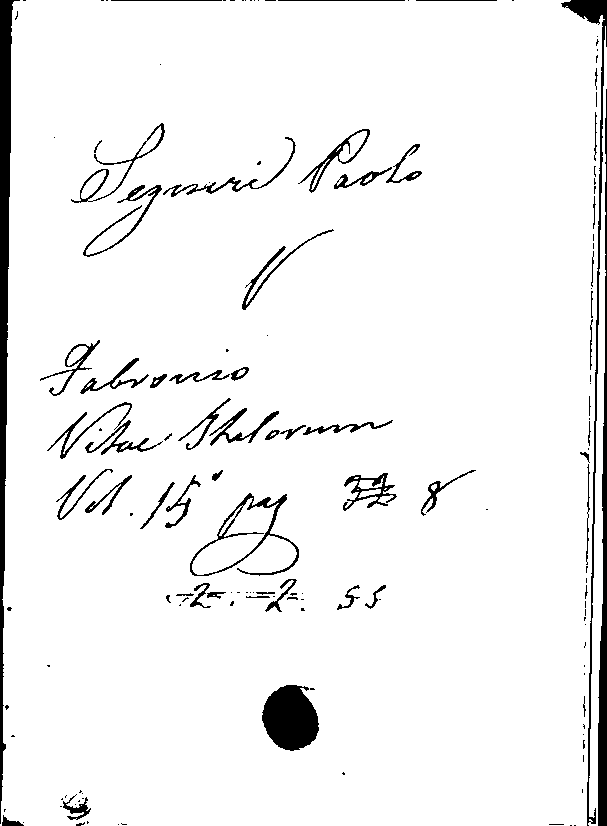 Segneri Paolo
V
Fabronio
Vitae Italorum
Vol. 15° pag 8
2. 2. 55